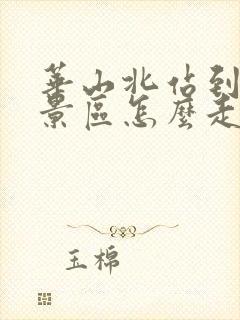 華山北佔到
景區怎麼走
玉棉